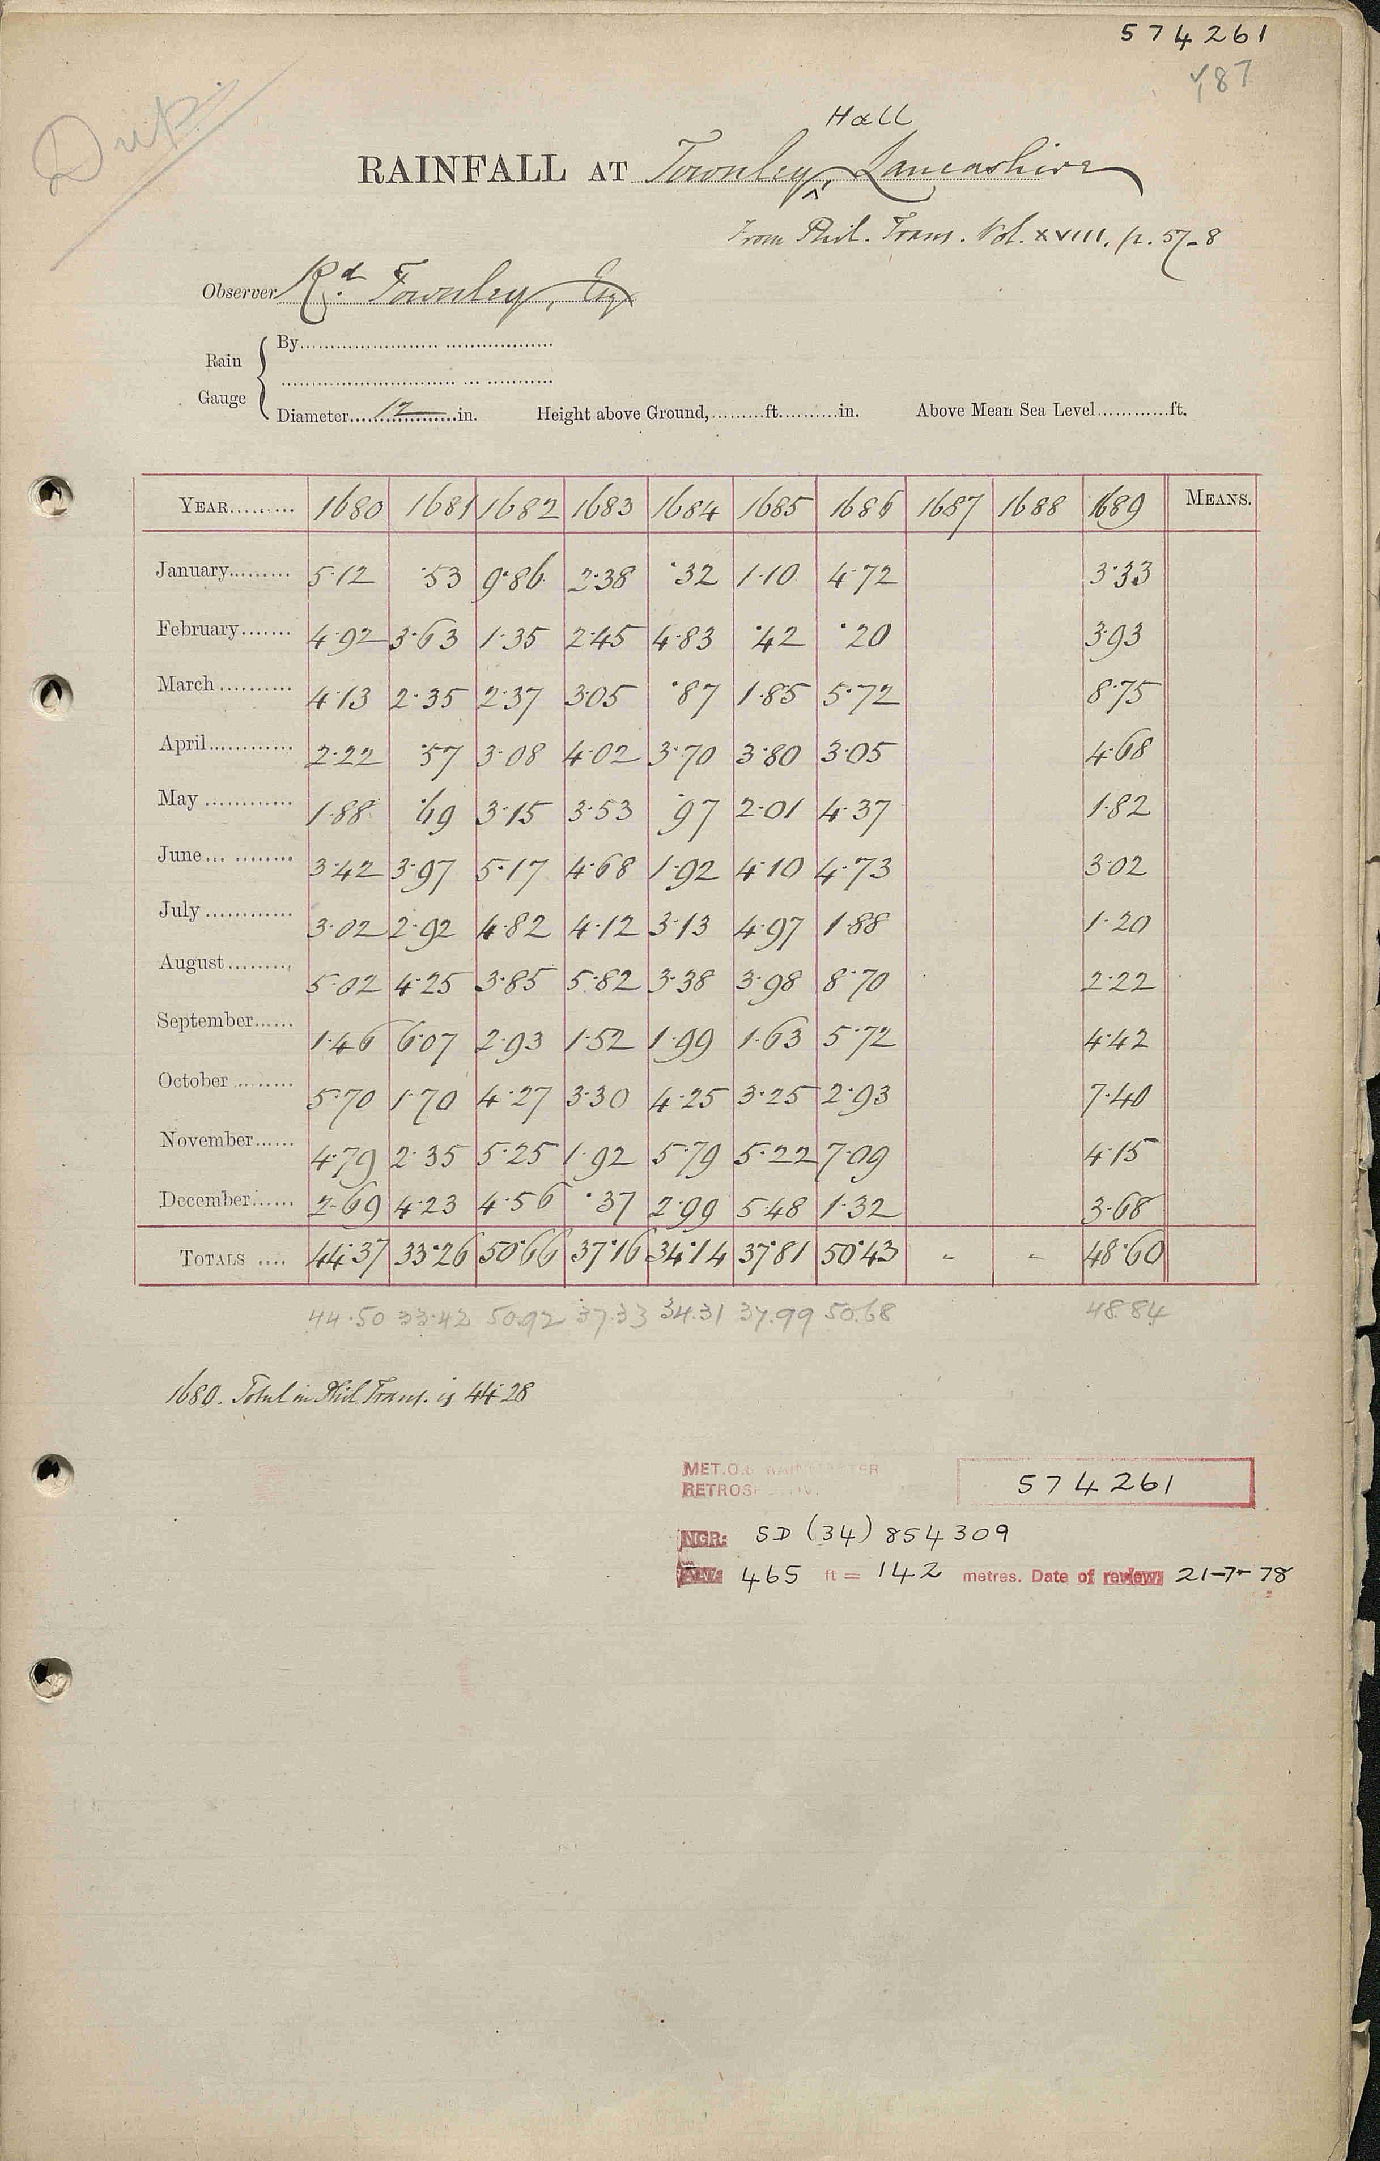 574261
487
Dup.
Hall
RAINFALL AT Townley, Lancashire
From Phil. Trans. Vol. XVIII, p. 57-8
Observer Rd. Townley, Esq
Rain Gauge { By
Diameter 12 in. Height above Ground, ft. in. Above Mean Sea Level ft.
YEAR 1680 1681 1682 1683 1684 1685 1686 1687 1688 1689 MEANS.
January 5.12 .53 9.86 2.38 .32 1.10 4.72 3.33
February 4.92 3.63 1.35 2.45 4.83 .42 .20 3.93
March 4.13 2.35 2.37 3.05 .87 1.85 5.72 8.75
April 2.22 .57 3.08 4.02 3.70 3.80 3.05 4.68
May 1.88 .69 3.15 3.53 .97 2.01 4.37 1.82
June 3.42 3.97 5.17 4.68 1.92 4.10 4.73 3.02
July 3.02 2.92 4.82 4.12 3.13 4.97 1.88 1.20
August 5.02 4.25 3.85 5.82 3.38 3.98 8.70 2.22
September 1.46 6.07 2.93 1.52 1.99 1.63 5.72 4.42
October 5.70 1.70 4.27 3.30 4.25 3.25 2.93 7.40
November 4.79 2.35 5.25 1.92 5.79 5.22 7.09 4.15
December 2.69 4.23 4.56 .37 2.99 5.48 1.32 3.68
TOTALS 44.37 33.26 50.66 37.16 34.14 37.81 50.43 - - 48.60
44.50 33.42 50.92 37.33 34.31 37.99 50.68 48.84
1680. Total in Phil Trans. is 44.28
MET.O.8 RAINMASTER
574261
RETROSPECTIVE
NGR: SD (34) 854309
465 ft = 142 metres. Date of review: 21-7-78